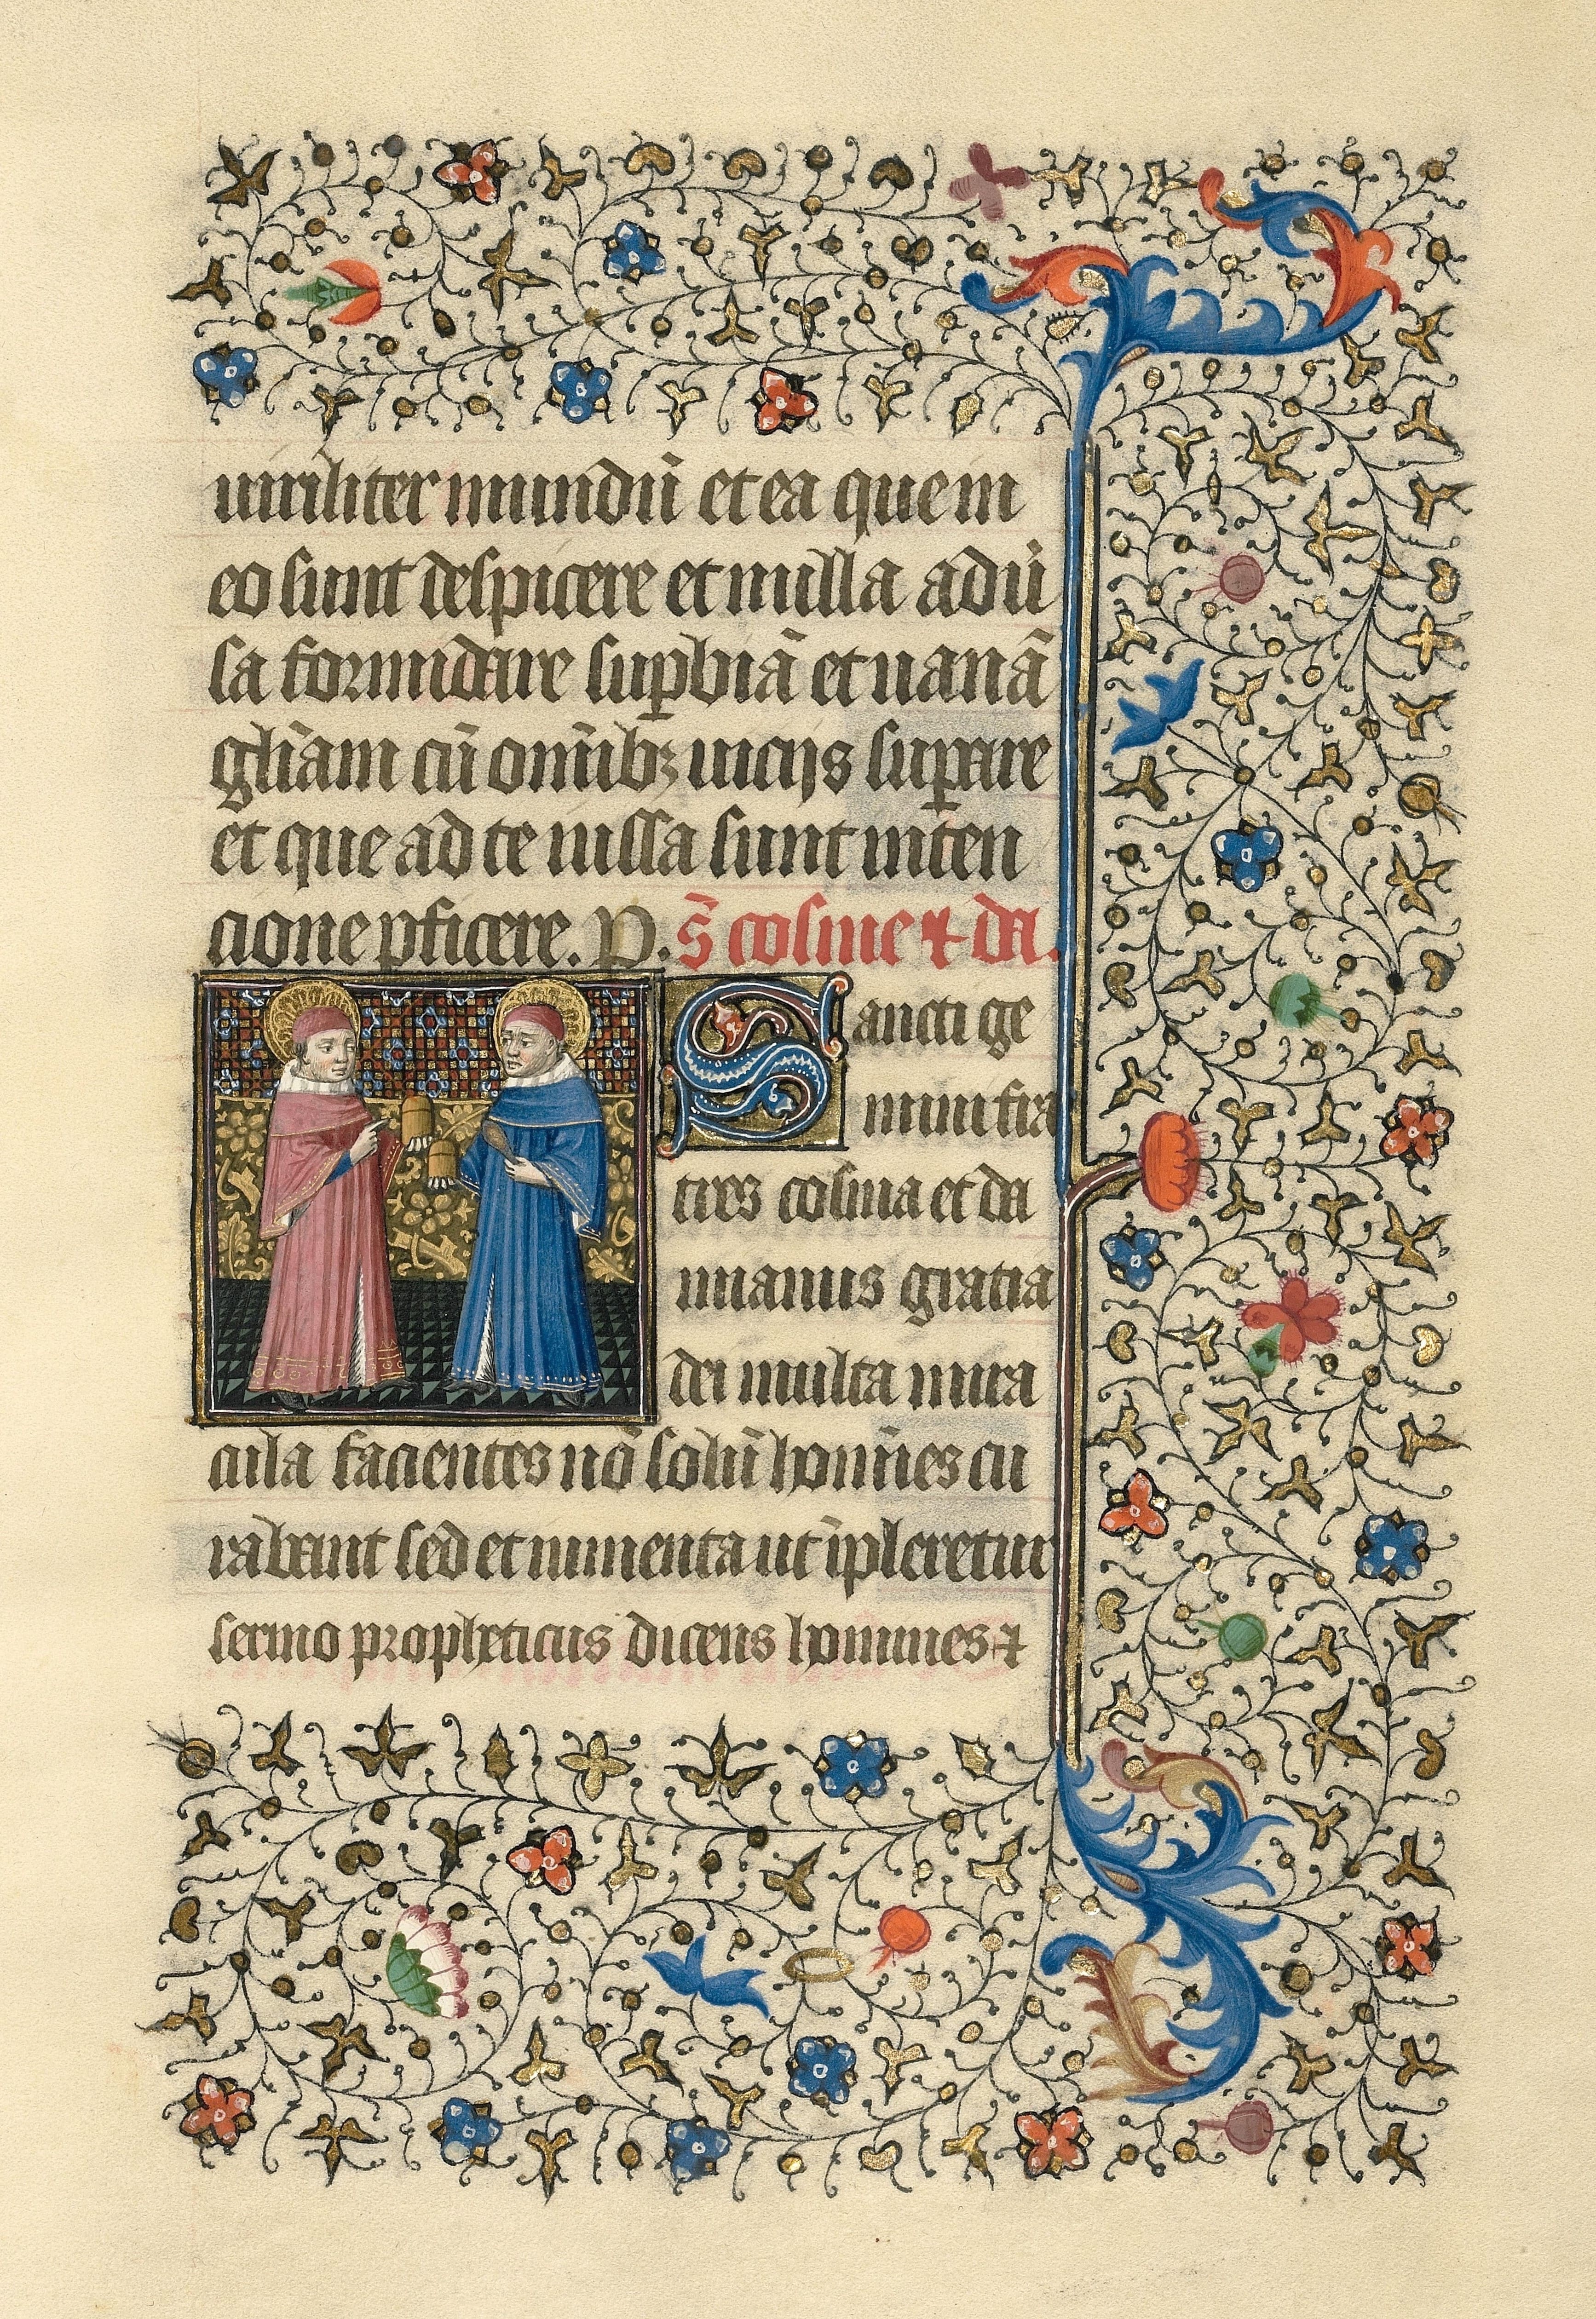 uiriliter mundū et ea que in
eo sunt despicere et nulla aduͬ
sa formidare supbiā et uanā
gliam cū omībꝫ uicijs supare
et que ad te iussa sunt inten
cione pficere. P. s̄ cosme ⁊ da.
Sancti ge
mini fra
tres cosma et da
mianus gratia
dei multa mira
cula facientes nō solū homīes cu
rabant sed et iumenta ut īpleretur
sermo propheticus dicens homines ⁊